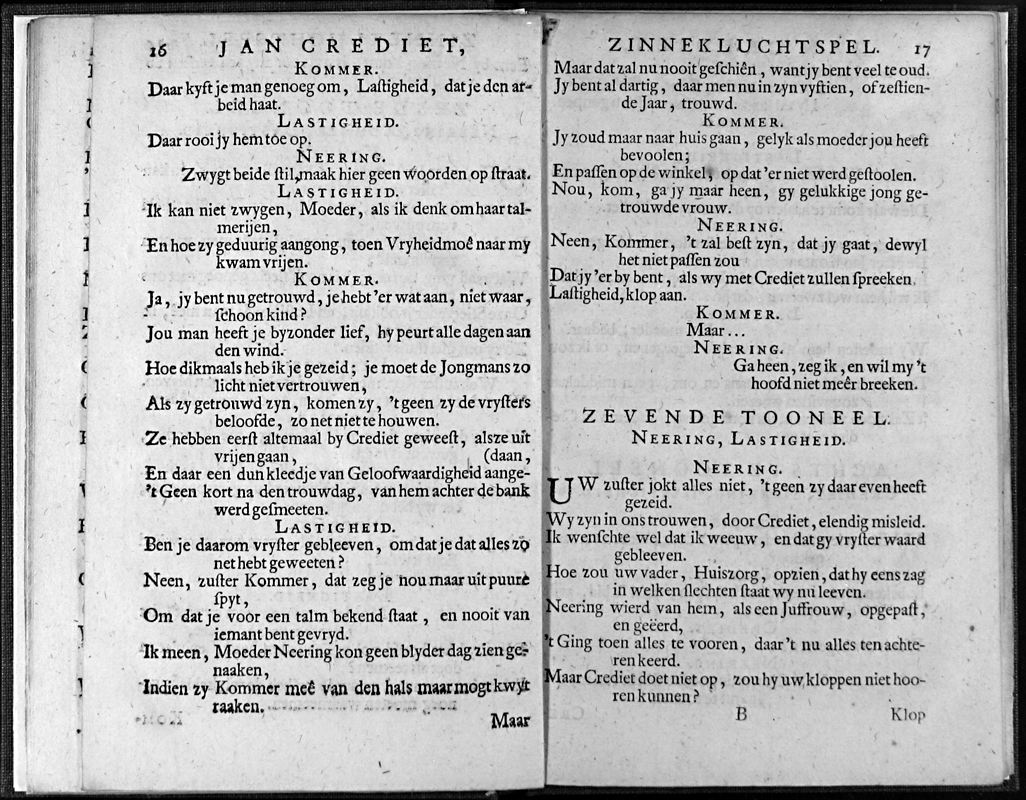 16 JAN CREDIET,
KOMMER.
Daar kyft je man genoeg om, Laſtigheid, dat je den ar-
beid haat.
LASTIGHEID.
Daar rooi jy hem toe op.
NEERING.
Zwygt beide ſtil, maak hier geen woorden op ſtraat.
LASTIGHEID.
Ik kan niet zwygen, Moeder, als ik denk om haar tal-
merijen,
En hoe zy geduurig aangong, toen Vryheid moê naar my
kwam vrijen.
KOMMER.
Ja, jy bent nu getrouwd, je hebt 'er wat aan, niet waar,
ſchoon kind?
Jou man heeft je byzonder lief, hy peurt alle dagen aan
den wind.
Hoe dikmaals heb ik je gezeid; je moet de Jongmans zo
licht niet vertrouwen,
Als zy getrouwd zyn, komen zy, 't geen zy de vryſters
beloofde, zo net niet te houwen.
Ze hebben eerſt altemaal by Crediet geweeſt, alsze uit
vrijen gaan, (daan,
En daar een dun kleedje van Geloofwaardigheid aange-
't Geen kort na den trouwdag, van hem achter de bank
werd geſmeeten.
LASTIGHEID.
Ben je daarom vryſter gebleeven, om dat je dat alles zo
net hebt geweeten?
Neen, zuſter Kommer, dat zeg je nou maar uit puure
ſpyt,
Om dat je voor een talm bekend ſtaat, en nooit van
iemant bent gevryd.
Ik meen, Moeder Neering kon geen blyder dag zien ge-
naaken,
Indien zy Kommer meê van den hals maar mogt kwyt
raaken.
Maar
ZINNEKLUCHTSPEL. 17
Maar dat zal nu nooit geſchiên, want jy bent veel te oud.
Jy bent al dartig, daar men nu in zyn vyftien, of zeſtien-
de Jaar, trouwd.
KOMMER.
Jy zoud maar naar huis gaan, gelyk als moeder jou heeft
bevoolen;
En paſſen op de winkel, op dat 'er niet werd geſtoolen.
Nou, kom, ga jy maar heen, gy gelukkige jong ge-
trouwde vrouw.
NEERING.
Neen, Kommer, 't zal beſt zyn, dat jy gaat, dewyl
het niet paſſen zou
Dat jy 'er by bent, als wy met Crediet zullen ſpreeken.
Laſtigheid, klop aan.
KOMMER.
Maar...
NEERING.
Ga heen, zeg ik, en wil my 't
hoofd niet meêr breeken.
ZEVENDE TOONEEL.
NEERING, LASTIGHEID.
NEERING.
UW zuſter jokt alles niet, 't geen zy daar even heeft
gezeid.
Wy zyn in ons trouwen, door Crediet, elendig misleid.
Ik wenſchte wel dat ik weeuw, en dat gy vryſter waard
gebleeven.
Hoe zou uw vader, Huiszorg, opzien, dat hy eens zag
in welken ſlechten ſtaat wy nu leeven.
Neering wierd van hem, als een Juffrouw, opgepaſt,
en geëerd,
't Ging toen alles te vooren, daar 't nu alles ten achte-
ren keerd.
Maar Crediet doet niet op, zou hy uw kloppen niet hoo-
ren kunnen?
B Klop